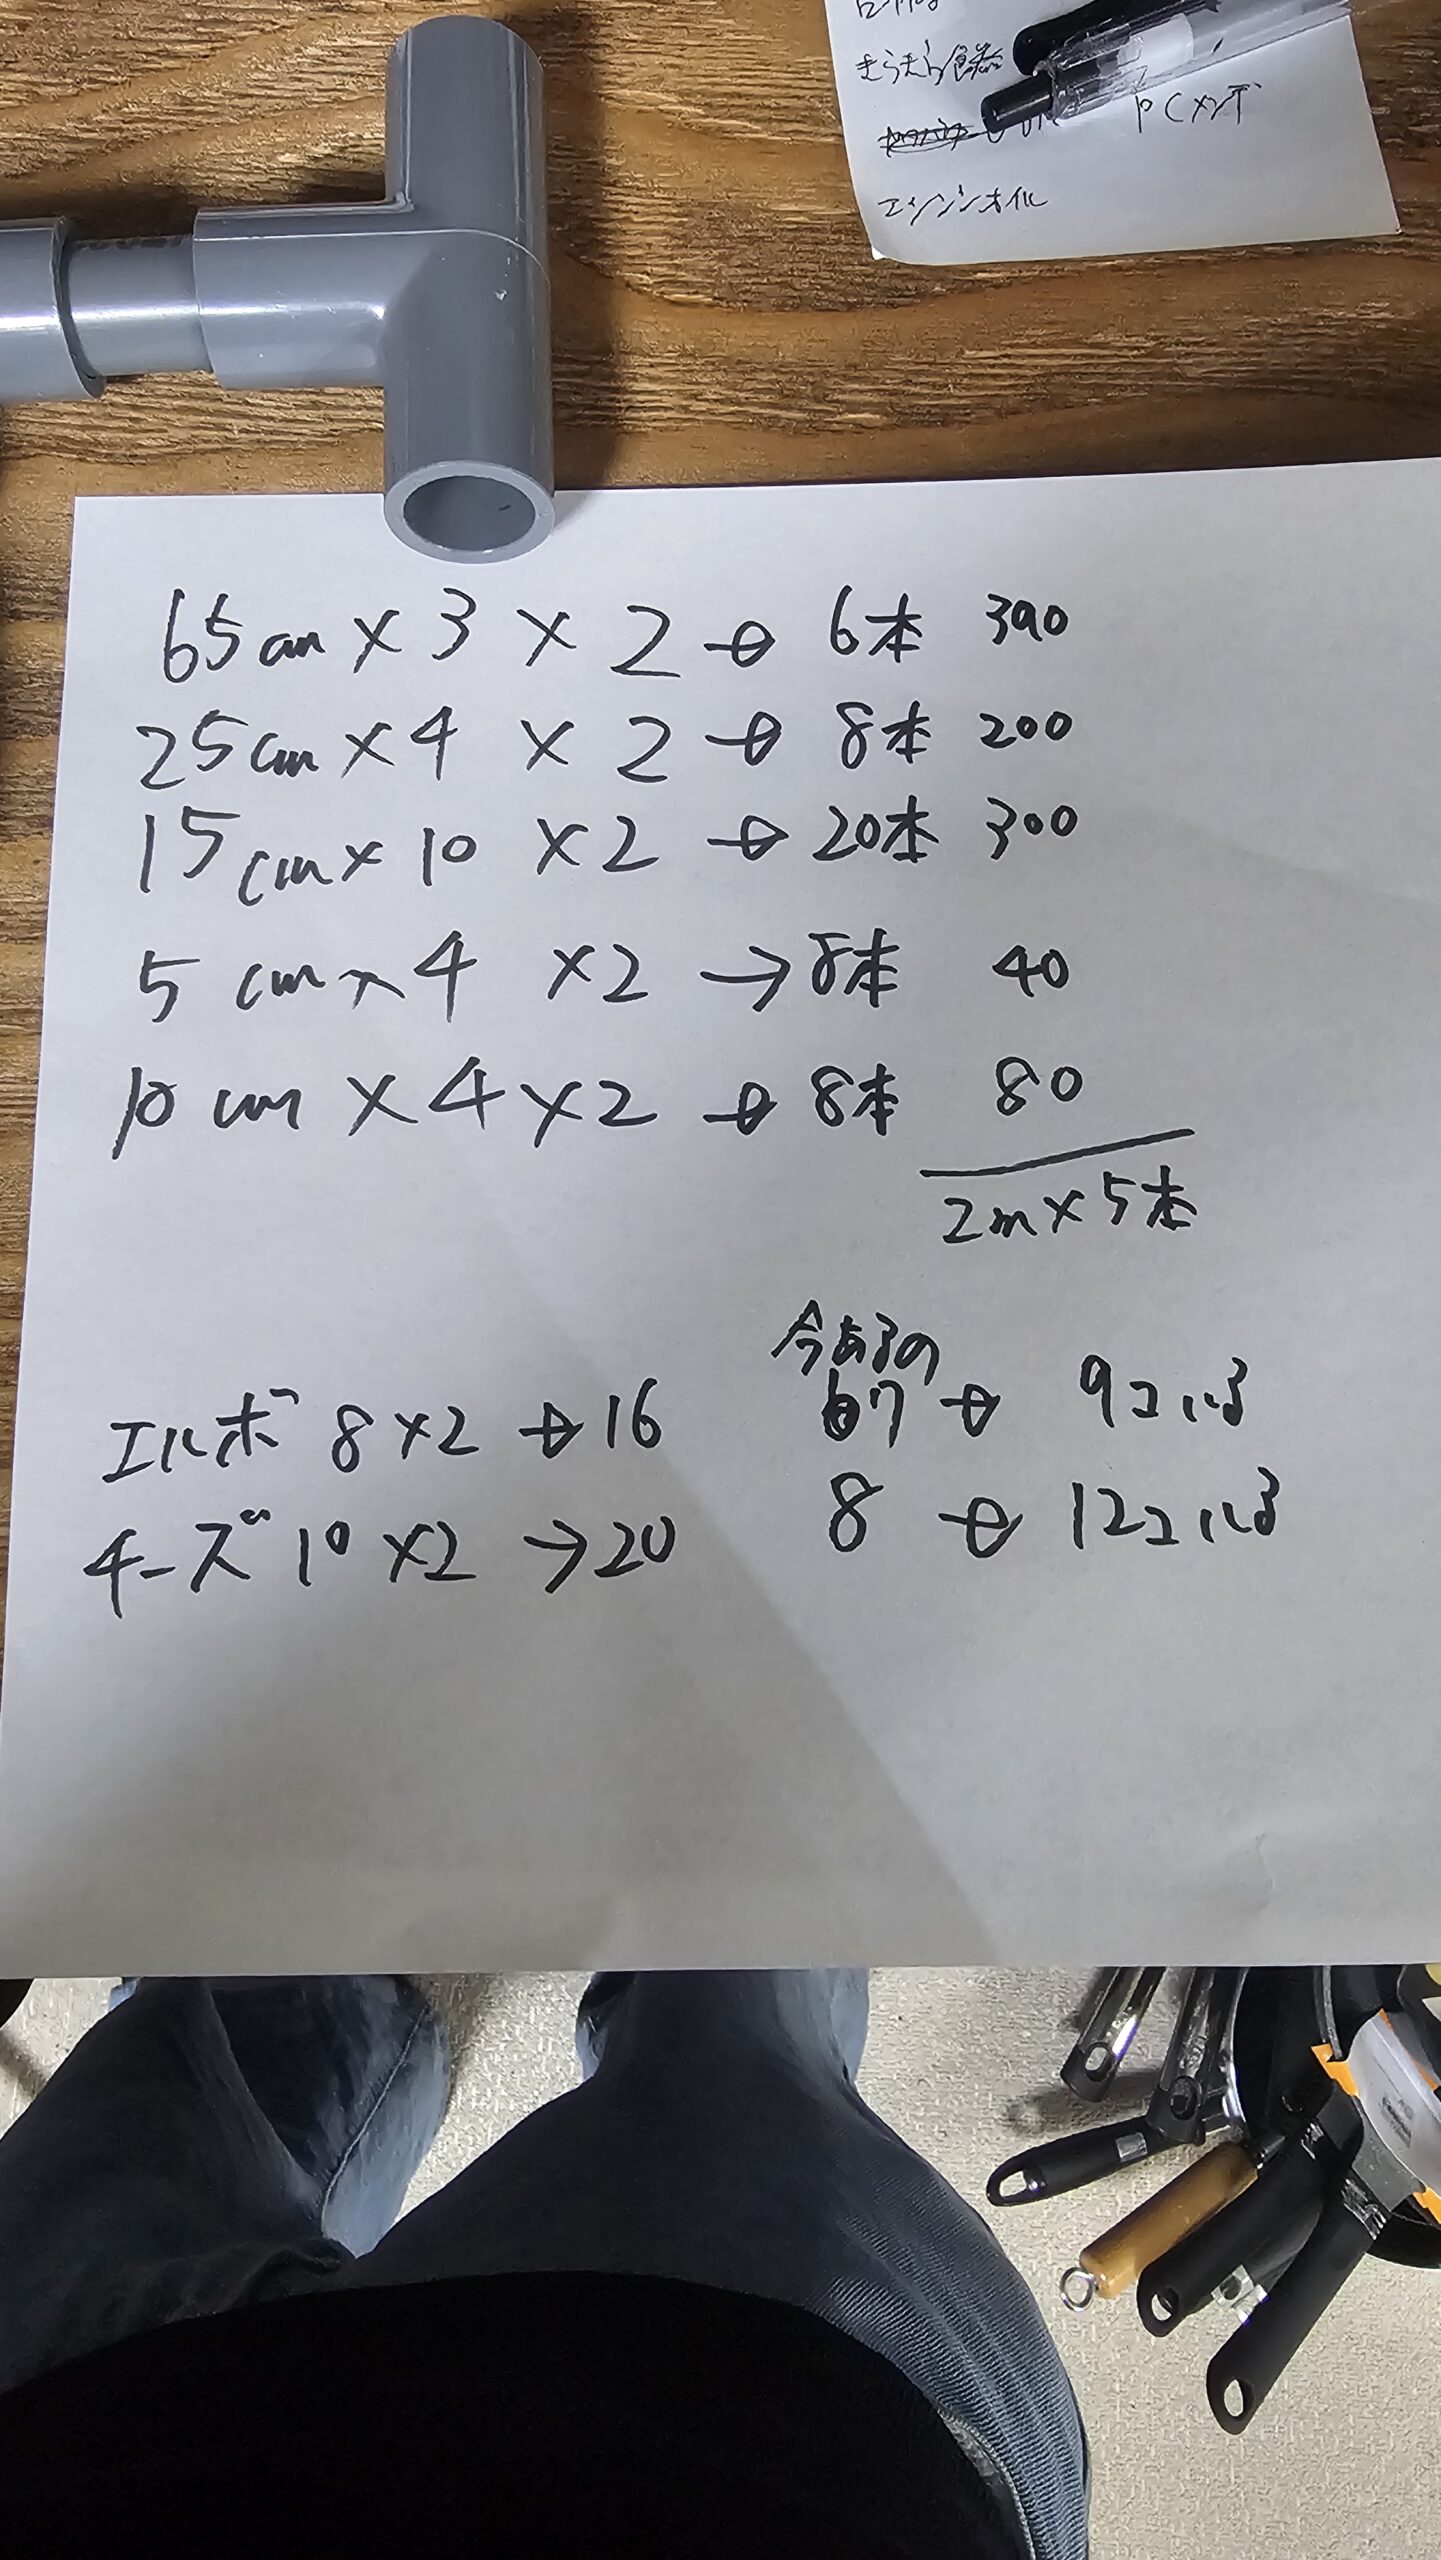 きらきら食器
PCメンテ
エンジンオイル
65cm × 3 × 2 → 6本 390
25cm × 4 × 2 → 8本 200
15cm × 10 × 2 → 20本 300
5cm × 4 × 2 → 8本 40
10cm × 4 × 2 → 8本 80
2m × 5本
今あるの
エルボ 8 × 2 → 16 7 → 9コいる
チーズ 10 × 2 → 20 8 → 12コいる